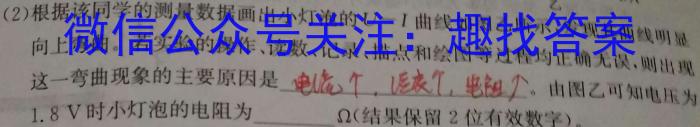 (2)根据该同学的测量数据画出小灯泡的U-I曲线
微信公众号关注：趣找答案
明显
向上弯曲。若实验的操作、读数、记录、描点和绘图等过程均正确无误,则出现
这一弯曲现象的主要原因是 电流↑,温度↑,电阻↑。由图乙可知电压为
1.8 V时小灯泡的电阻为 Ω(结果保留2位有效数字)。